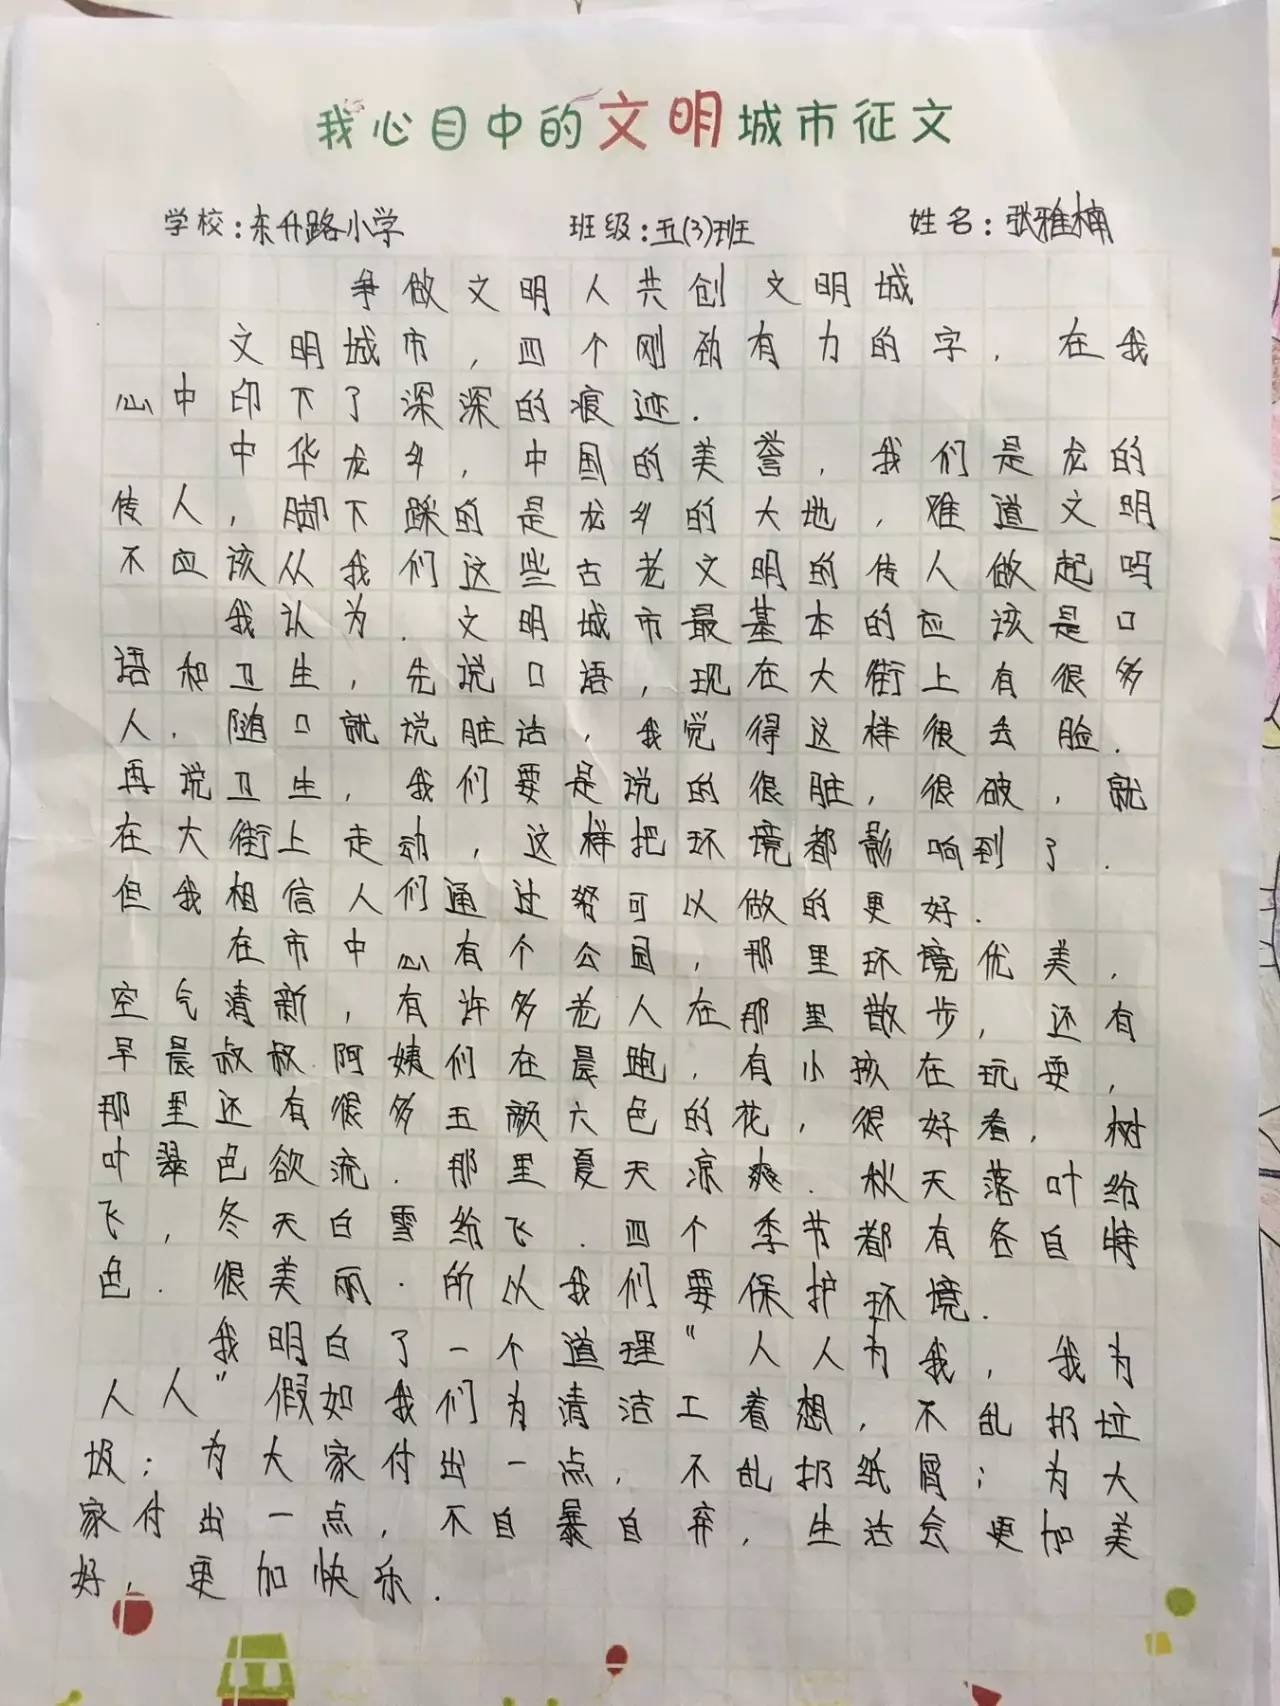 我心目中的文明城市征文
学校:东升路小学 班级:五(3)班 姓名:张雅楠
争做文明人共创文明城
文明城市,四个刚劲有力的字,在我
心中印下了深深的痕迹.
中华龙乡,中国的美誉,我们是龙的
传人,脚下踩的是龙乡的大地,难道文明
不应该从我们这些古老文明的传人做起吗
我认为.文明城市最基本的应该是口
语和卫生,先说口语,现在大街上有很多
人.随口就说脏话,我觉得这样很丢脸.
再说卫生,我们要是说的很脏,很破,就
在大街上走动,这样把环境都影响到了.
但我相信人们通过努可以做的更好.
在市中心有个公园,那里环境优美,
空气清新,有许多老人在那里散步,还有
早晨叔叔阿姨们在晨跑.有小孩在玩耍,
那里还有很多五颜六色的花,很好看.树
叶翠色欲流.那里夏天凉爽.秋天落叶纷
飞,冬天白雪纷飞.四个季节都有各自特
色.很美丽.所以我们要保护环境.
我明白了一个道理"人人为我,我为
人人"假如我们为清洁工着想,不乱扔垃
圾;为大家付出一点,不乱扔纸屑;为大
家付出一点,不自暴自弃,生活会更加美
好,更加快乐.